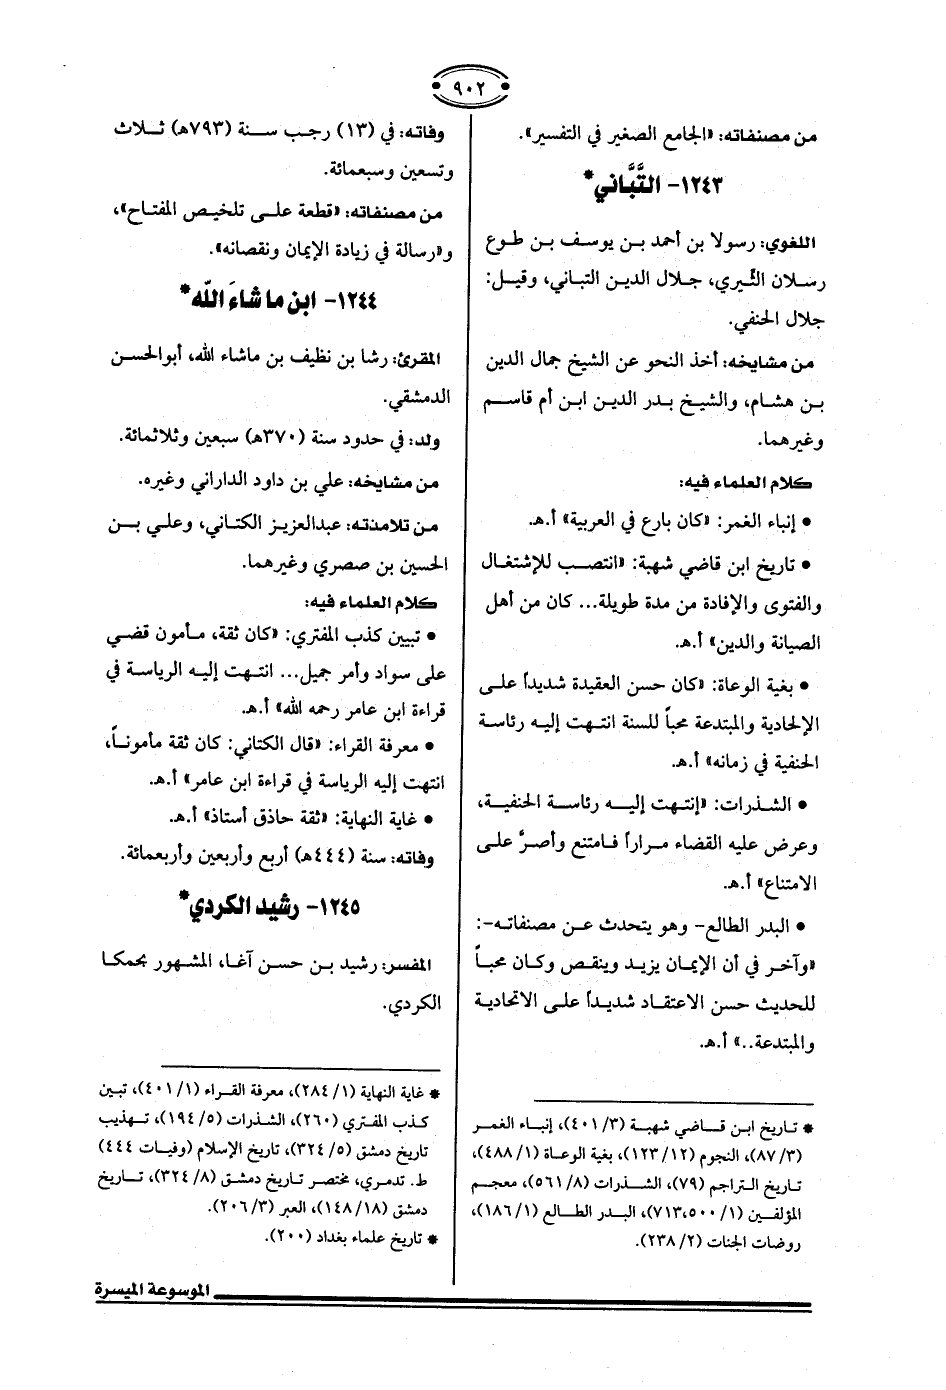 ٩٠٢
من مصنفاته: «الجامع الصغير في التفسير».
١٢٤٣- التَّبَّاني*
اللغوي: رسولا بن أحمد بن يوسف بن طوع
رسلان الثّيري، جلال الدين التباني، وقيل:
جلال الحنفي.
من مشايخه: أخذ النحو عن الشيخ جمال الدين
بن هشام، والشيخ بدر الدين ابن أم قاسم
وغيرهما.
كلام العلماء فيه:
• إنباء الغمر: «كان بارع في العربية» أ.هـ.
• تاريخ ابن قاضي شهبة: «انتصب للإشتغال
والفتوى والإفادة من مدة طويلة... كان من أهل
الصيانة والدين» أ.هـ.
• بغية الوعاة: «كان حسن العقيدة شديداً على
الإلحادية والمبتدعة محباً للسنة انتهت إليه رئاسة
الحنفية في زمانه» أ.هـ.
• الشذرات: «إنتهت إليه رئاسة الحنفية،
وعرض عليه القضاء مراراً فامتنع وأصرَّ على
الامتناع» أ.هـ.
• البدر الطالع- وهو يتحدث عن مصنفاته-:
«وآخر في أن الإيمان يزيد وينقص وكان محباً
للحديث حسن الاعتقاد شديداً على الاتحادية
والمبتدعة..» أ.هـ.
* تاريخ ابن قاضي شهبة (٣/ ٤٠١)، إنباء الغمر
(٣/ ٨٧)، النجوم (١٢/ ١٢٣)، بغية الوعاة (١/ ٤٨٨)،
تاريخ التراجم (٧٩)، الشذرات (٨/ ٥٦١)، معجم
المؤلفين (١/ ٧١٣،٥٠٠)، البدر الطالع (١/ ١٨٦)،
روضات الجنات (٢/ ٢٣٨).
وفاته: في (١٣) رجب سنة (٧٩٣هـ) ثلاث
وتسعين وسبعمائة.
من مصنفاته: «قطعة على تلخيص المفتاح»،
و«رسالة في زيادة الإيمان ونقصانه».
١٢٤٤- ابن ما شاءَ اللّه*
المقرئ: رشا بن نظيف بن ماشاء الله، أبوالحسن
الدمشقي.
ولد: في حدود سنة (٣٧٠هـ) سبعين وثلاثمائة.
من مشايخه: علي بن داود الداراني وغيره.
من تلامذته: عبدالعزيز الكتاني، وعلي بن
الحسين بن صصري وغيرهما.
كلام العلماء فيه:
• تبيين كذب المفتري: «كان ثقة، مأمون قضي
على سواد وأمر جميل... انتهت إليه الرياسة في
قراءة ابن عامر رحمه الله» أ.هـ.
• معرفة القراء: «قال الكتاني: كان ثقة مأموناً،
انتهت إليه الرياسة في قراءة ابن عامر» أ.هـ.
• غاية النهاية: «ثقة حاذق أستاذ» أ.هـ.
وفاته: سنة (٤٤٤هـ) أربع وأربعين وأربعمائة.
١٢٤٥- رشيد الكردي*
المفسر: رشيد بن حسن آغا، المشهور بجمكا
الكردي.
* غاية النهاية (١/ ٢٨٤)، معرفة القراء (١/ ٤٠١)، تبين
كذب المفتري (٢٦٠)، الشذرات (٥/ ١٩٤)، تهذيب
تاريخ دمشق (٥/ ٣٢٤)، تاريخ الإسلام (وفيات ٤٤٤)
ط. تدمري، مختصر تاريخ دمشق (٨/ ٣٢٤)، تاريخ
دمشق (١٨/ ١٤٨)، العبر (٣/ ٢٠٦).
* تاريخ علماء بغداد (٢٠٠).
الموسوعة الميسرة